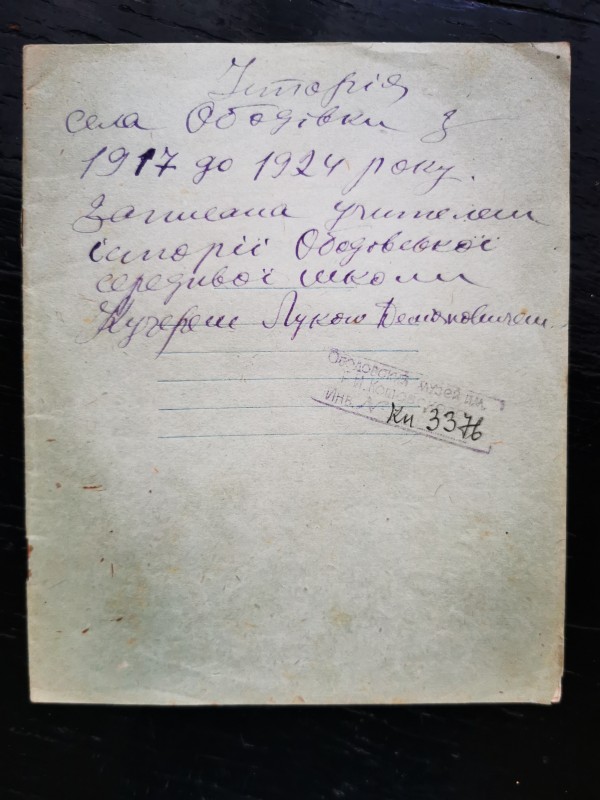 Історія
села Ободівки з
1917 до 1924 року.
Записана учителем
історії Ободівської
середньої школи
Кучерем Лукою Демяновичем.
Ободовский музей им.
Г.И. Котовского
Инв. №
Кп 3376